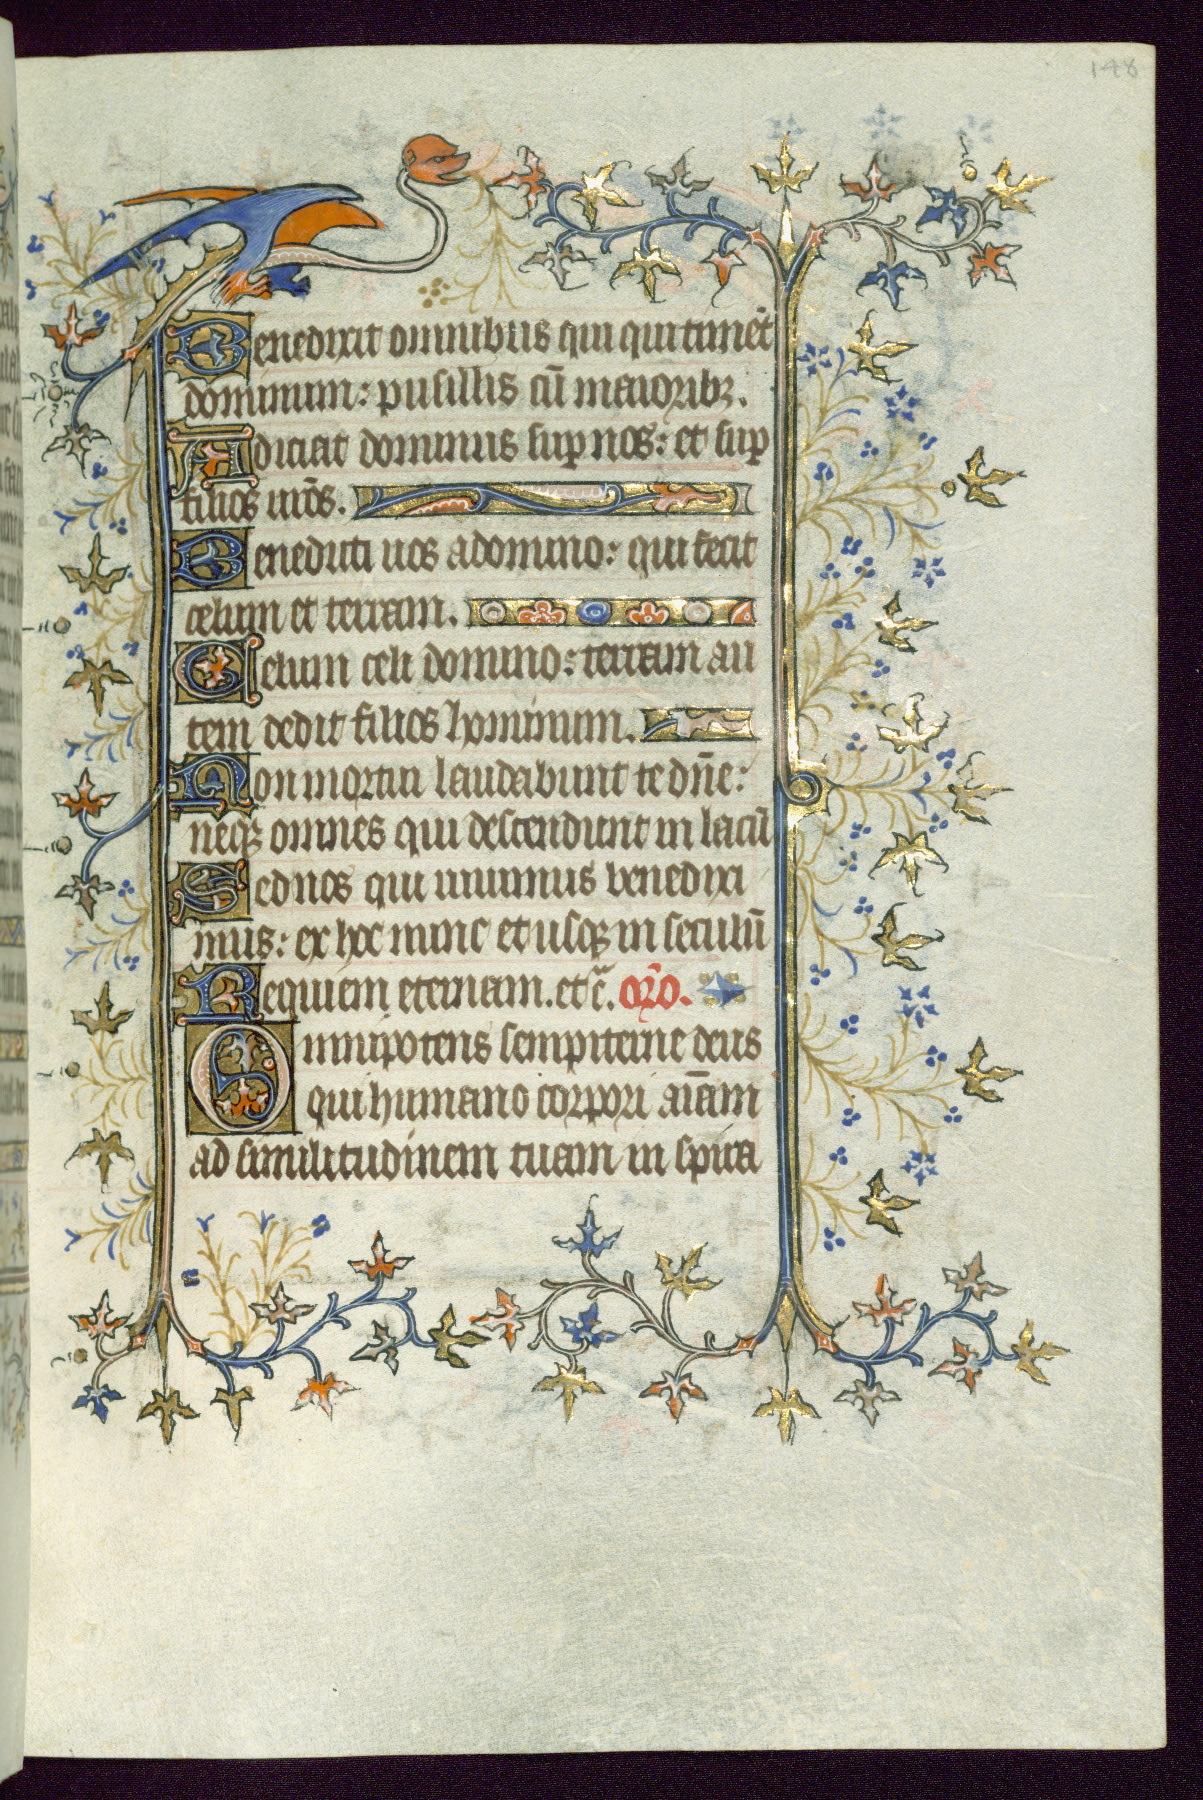 148
Benedixit omnibus qui qui timēt
dominum: pusillis cū maioribꝫ.
Adiciat dominus suꝑ nos: et suꝑ
filios ur̄os.
Benedicti uos adomino: qui fecit
celum et terram.
Celum celi domino: terram au
tem dedit filios hominum.
Non mortui laudabunt te dn̄e:
neqꝫ omnes qui descendunt in lacū
Sed nos qui uiuimus benedixi
mus: ex hoc nunc et usqꝫ in seculū
Requiem eternam. et c̄. or̄o.
Omnipotens sempiterne deus
qui humano corpori aīam
ad similitudinem tuam in spira